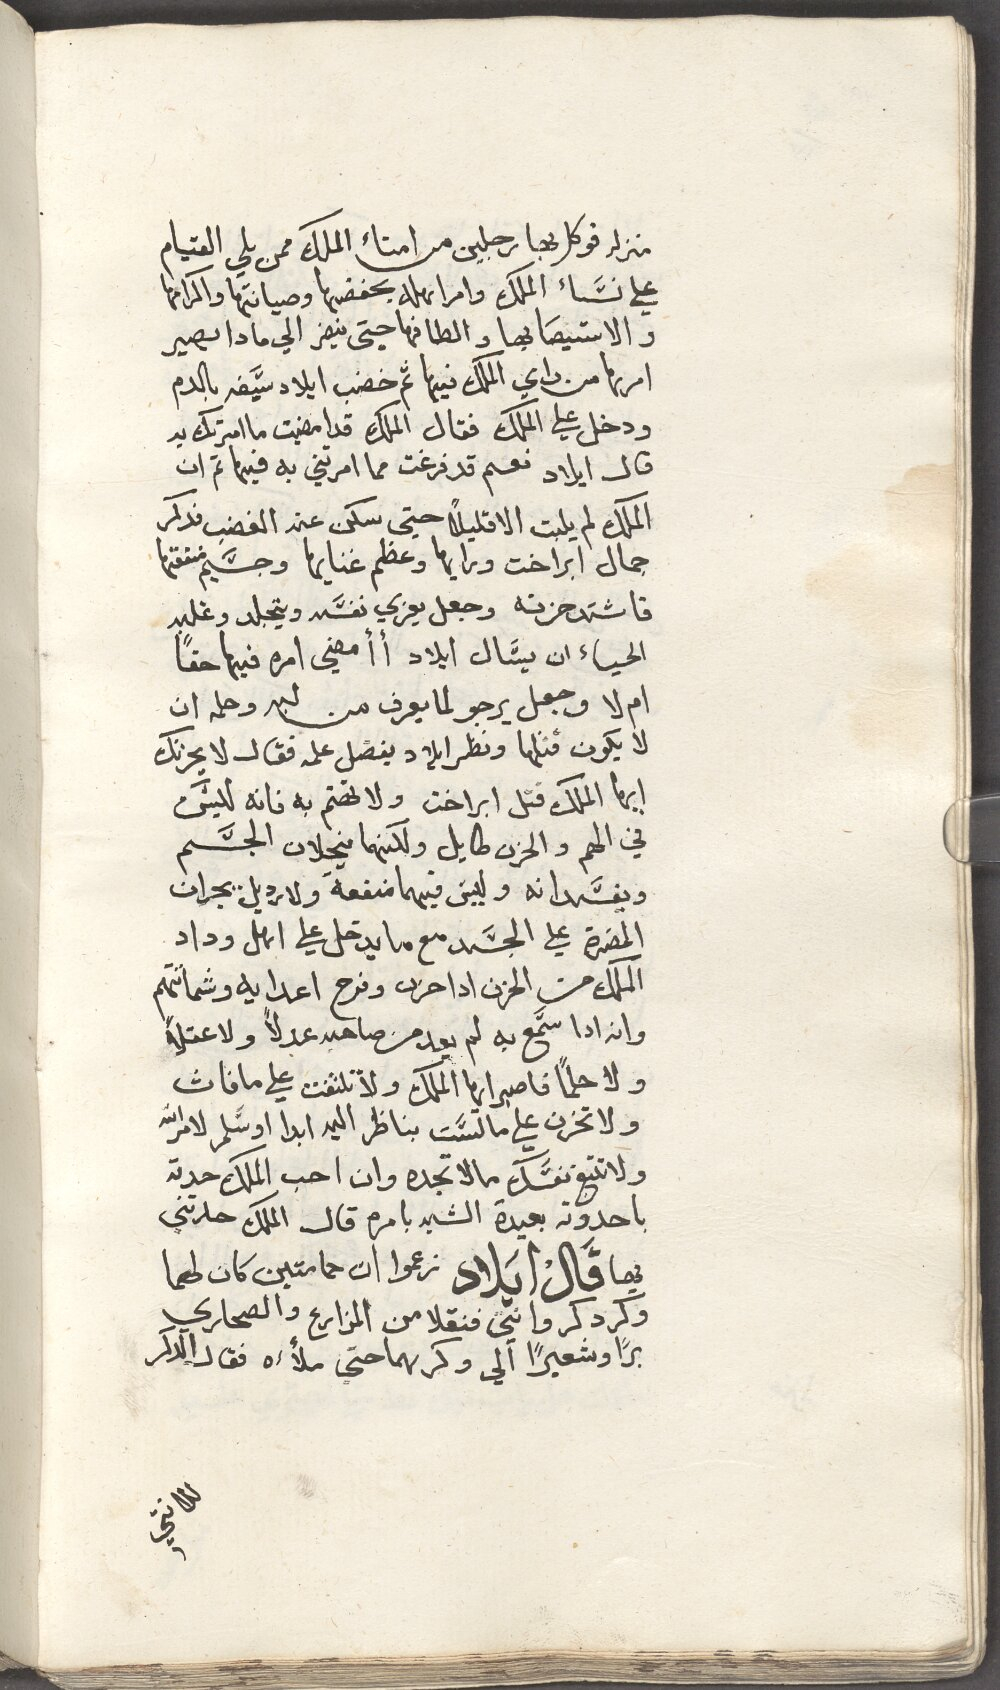 منزله فوكل بها رجلين من امناء الملك ممن يلي القيام
علي نساء الملك وامر اهله بحفضها وصيانتها واكرامها
والاستيصا بها والطافها حتى ينضر الي مادا يصير
امرها من راي الملك فيها ثم خضب ايلاد سيفه بالدم
ودخل علي الملك فقال الملك قد امضيت ما امرتك به
قال ايلاد نعم قد فرغت مما امرتني به فيها ثم ان
الملك لم يلبت الا قليلاً حتى سكن عنه الغضب فدكر
جمال ابراخت ورايها وعظم غنايها وجسيم منفعتها
فاشتد حزنه وجعل يعزي نفسه ويتجلد وغلبه
الحياء ان يسال ايلاد أأمضي امره فيها حقاً
ام لا وجعل يرجو لما يعرف من لبه وحلمه ان
لا يكون قتلها ونظر ايلاد بفضل علمه فقال لا يحزنك
ايها الملك قتل ابراخت ولا تهتم به فانه لليس
في الهم والحزن طايل ولكنهما ينحلان الجسم
ويفسدانه وليس فيهما منفعة ولا يزيل بجران
المضرة علي الجسد مع ما يدخل علي اهل وداد
الملك من الحزن ادا حزن وفرح اعدايه وشماتتهم
وانه ادا سمع به لم يعد من صاحبه عدلاً ولا عقلاً
ولا حلماً فاصبر ايها الملك ولا تلتفت علي ما فات
ولا تحزن علي ما لست بناظر اليه ابدا او سلم لامر الله
ولا تتبع نفسك ما لا تجده وان احب الملك حدته
باحدوته بعيدة الشبه بامره قال الملك حدتني
بها قال ايلاد زعموا ان حمامتين كان لهما
وكر دكر وانثي فنقلا من المزارع والصحاري
براً وشعيراً الي وكرهما حتي ملأءه فقال الدكر
للانثي